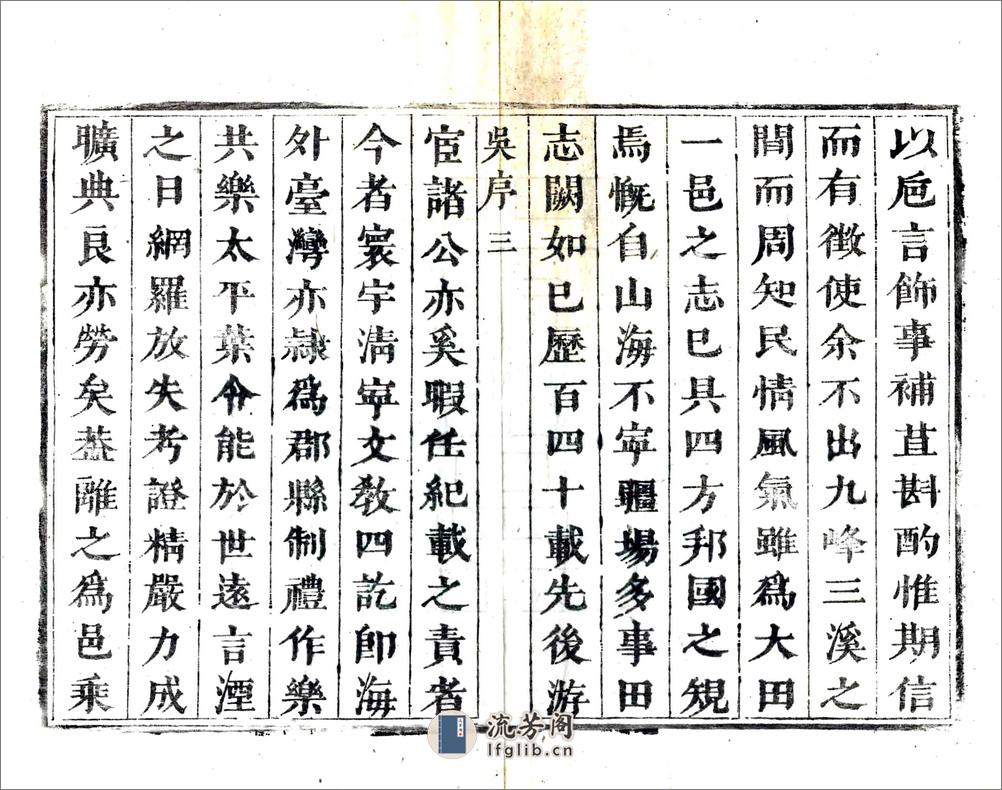 以卮言飾事補苴斟酌惟期信
而有徵使余不出九峰三溪之
間而周知民情風氣雖爲大田
一邑之志已具四方邦國之規
焉慨自山海不寧疆場多事田
志闕如已歷百四十載先後游
吳序 三
宦諸公亦奚暇任紀載之責者
今者寰宇清寧文敎四訖卽海
外臺灣亦隸爲郡縣制禮作樂
共樂太平葉令能於世遠言湮
之日網羅放失考證精嚴力成
曠典良亦勞矣葢離之爲邑乘
流芳阁
lfglib.cn